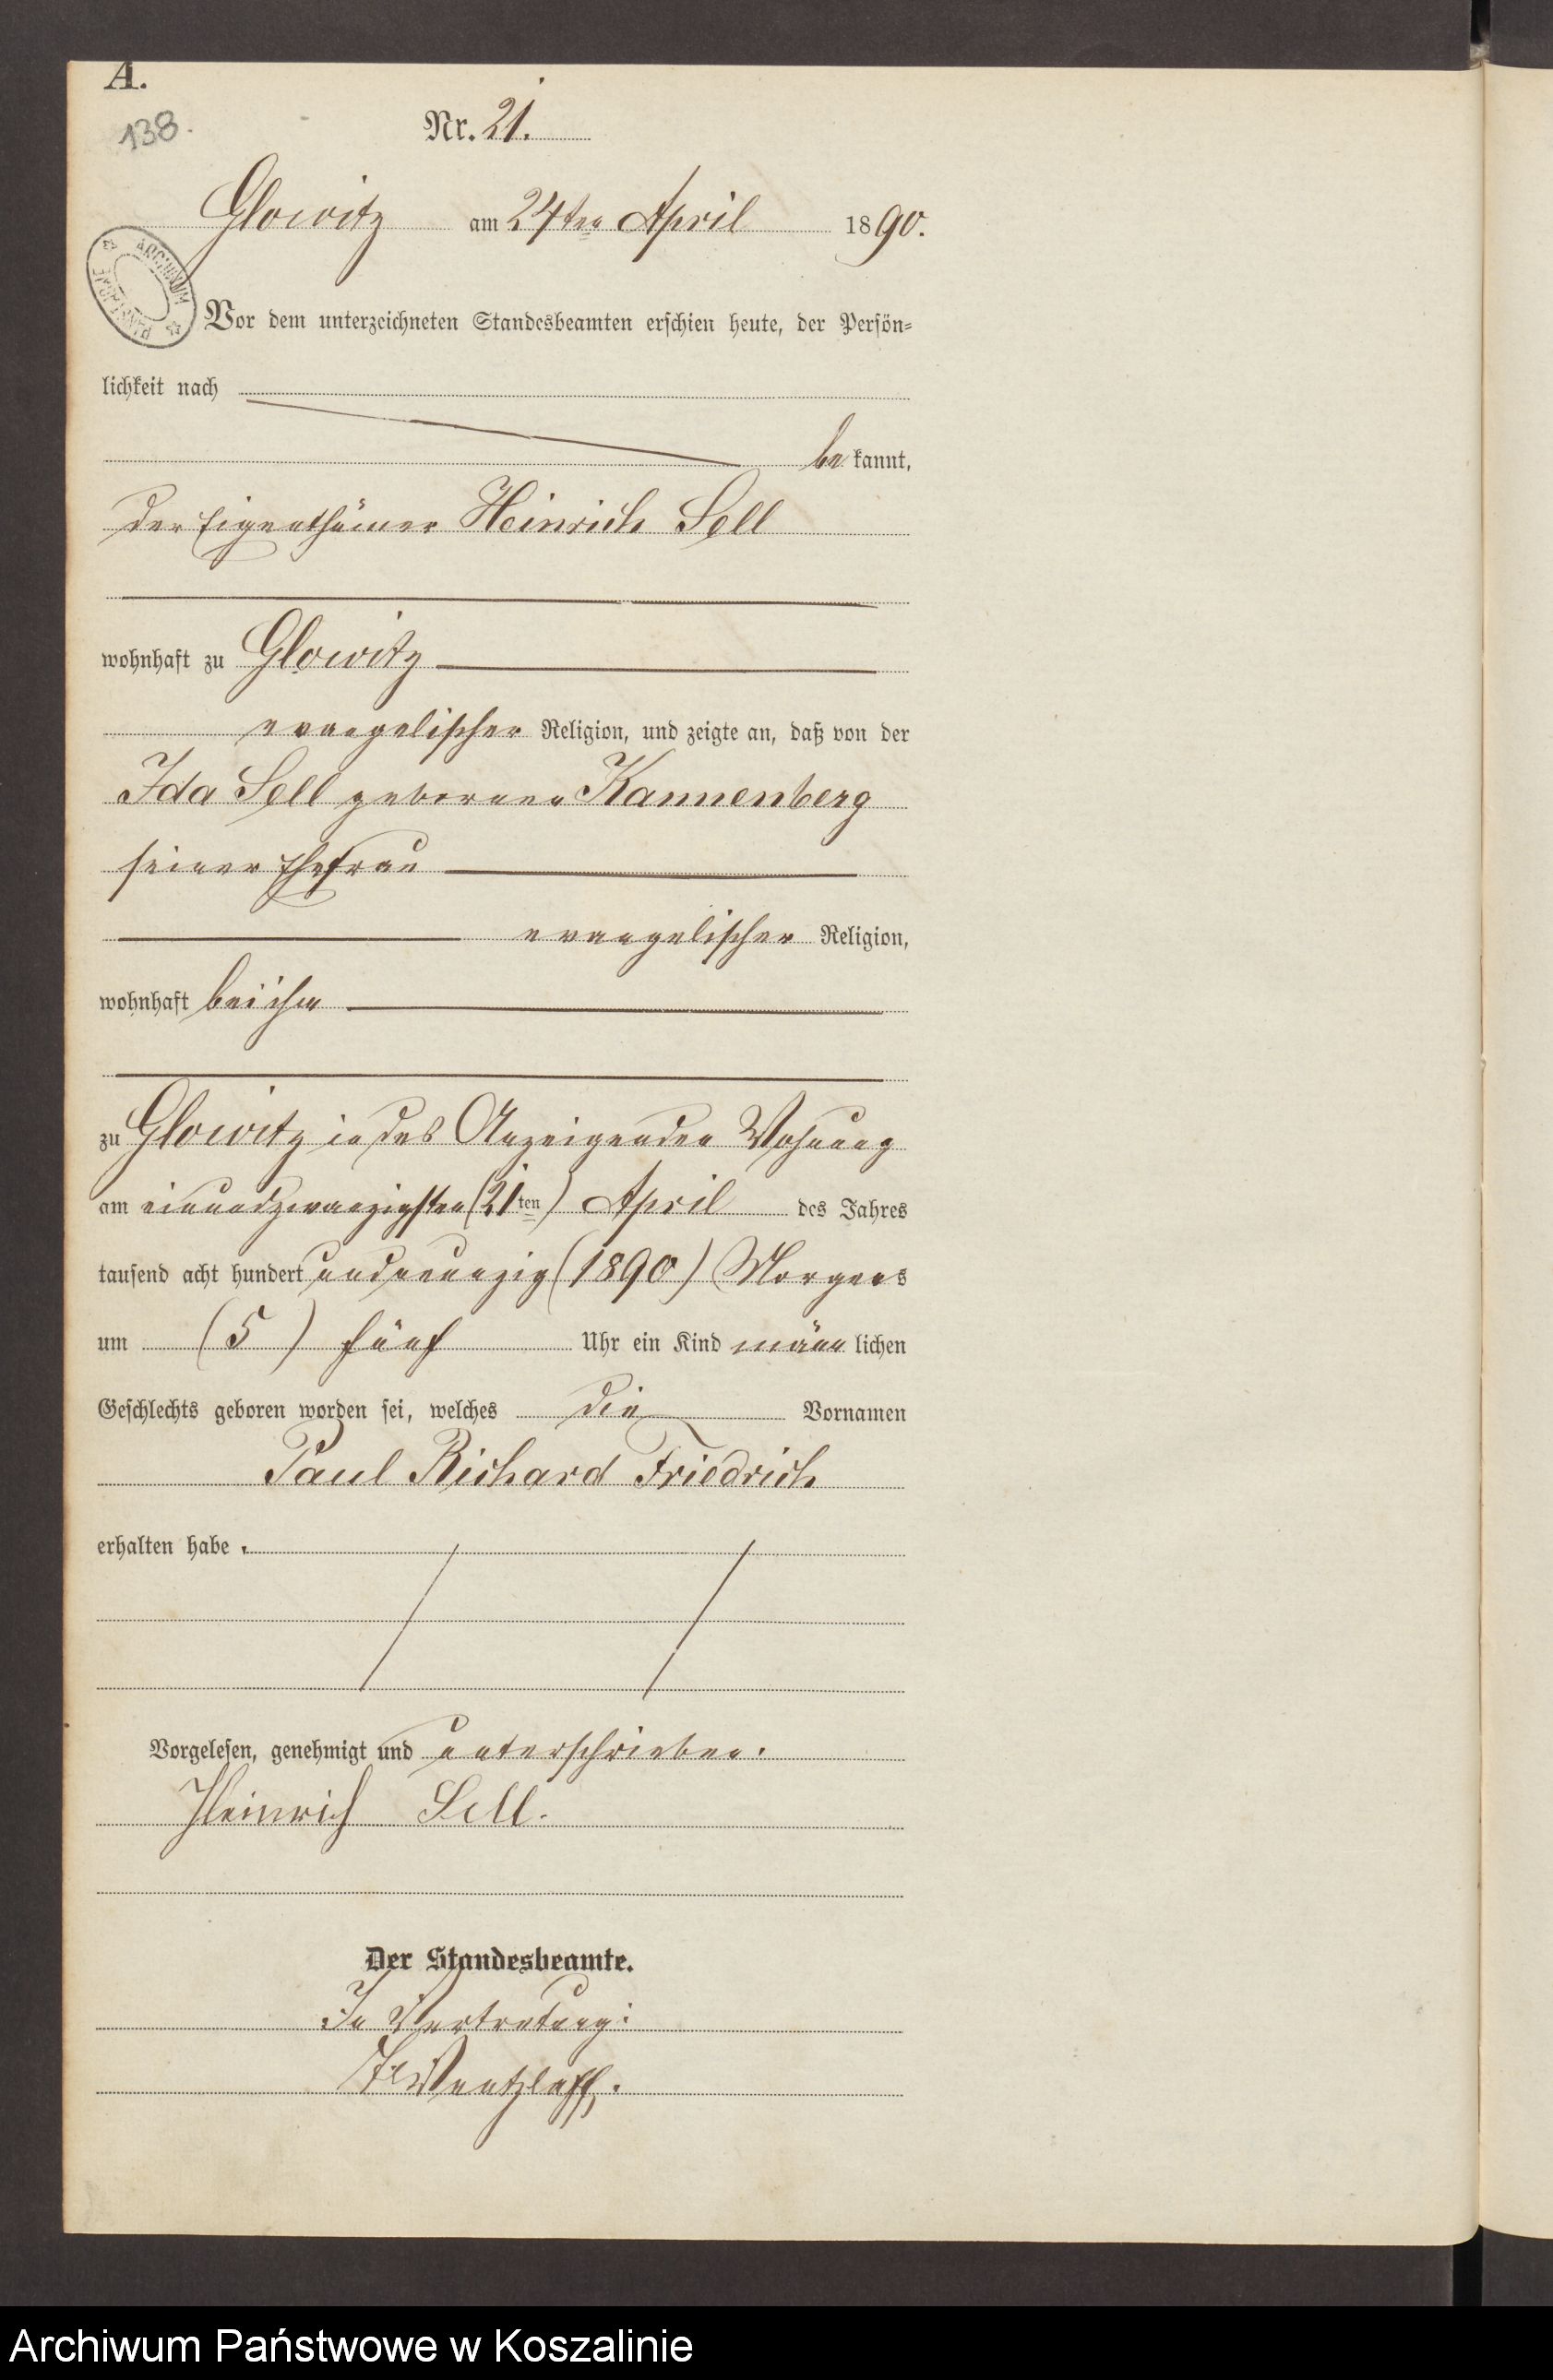 A.
138.
Nr. 21.
Glowitz am 24ten April 1890.
ARCHIWUM PAŃSTWOWE
Vor dem unterzeichneten Standesbeamten erschien heute, der Persön-
lichkeit nach
be kannt,
der Eigenthümer Heinrich Sell
wohnhaft zu Glowitz
evangelischer Religion, und zeigte an, daß von der
Ida Sell geborenen Kannenberg
seiner Ehefrau
evangelischer Religion,
wohnhaft bei ihm
zu Glowitz in des Anzeigenden Wohnung
am einundzwanzigsten (21ten) April des Jahres
tausend acht hundert und neunzig (1890) Morgens
um (5) fünf Uhr ein Kind männ lichen
Geschlechts geboren worden sei, welches die Vornamen
Paul Richard Friedrich
erhalten habe.
Vorgelesen, genehmigt und unterschrieben.
Heinrich Sell.
Der Standesbeamte.
In Vertretung:
Wentzlaff.
Archiwum Państwowe w Koszalinie